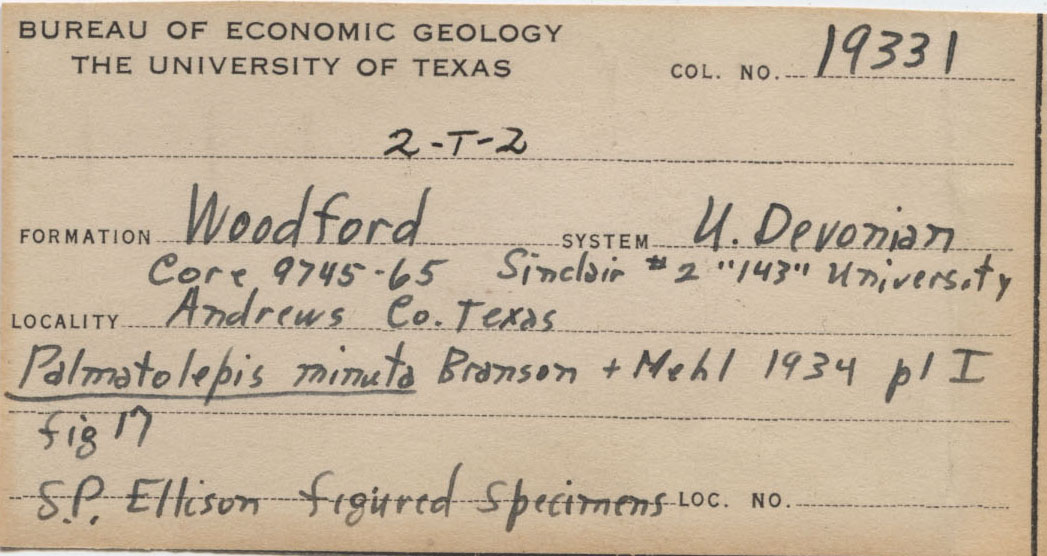 BUREAU OF ECONOMIC GEOLOGY
THE UNIVERSITY OF TEXAS
COL. NO. 19331
2-T-2
FORMATION Woodford SYSTEM U. Devonian
Core 9745-65 Sinclair #2 "143" University
LOCALITY Andrews Co. Texas
Palmatolepis minuta Branson + Mehl 1934 pl I
fig 17
S.P. Ellison figured Specimens LOC. NO.